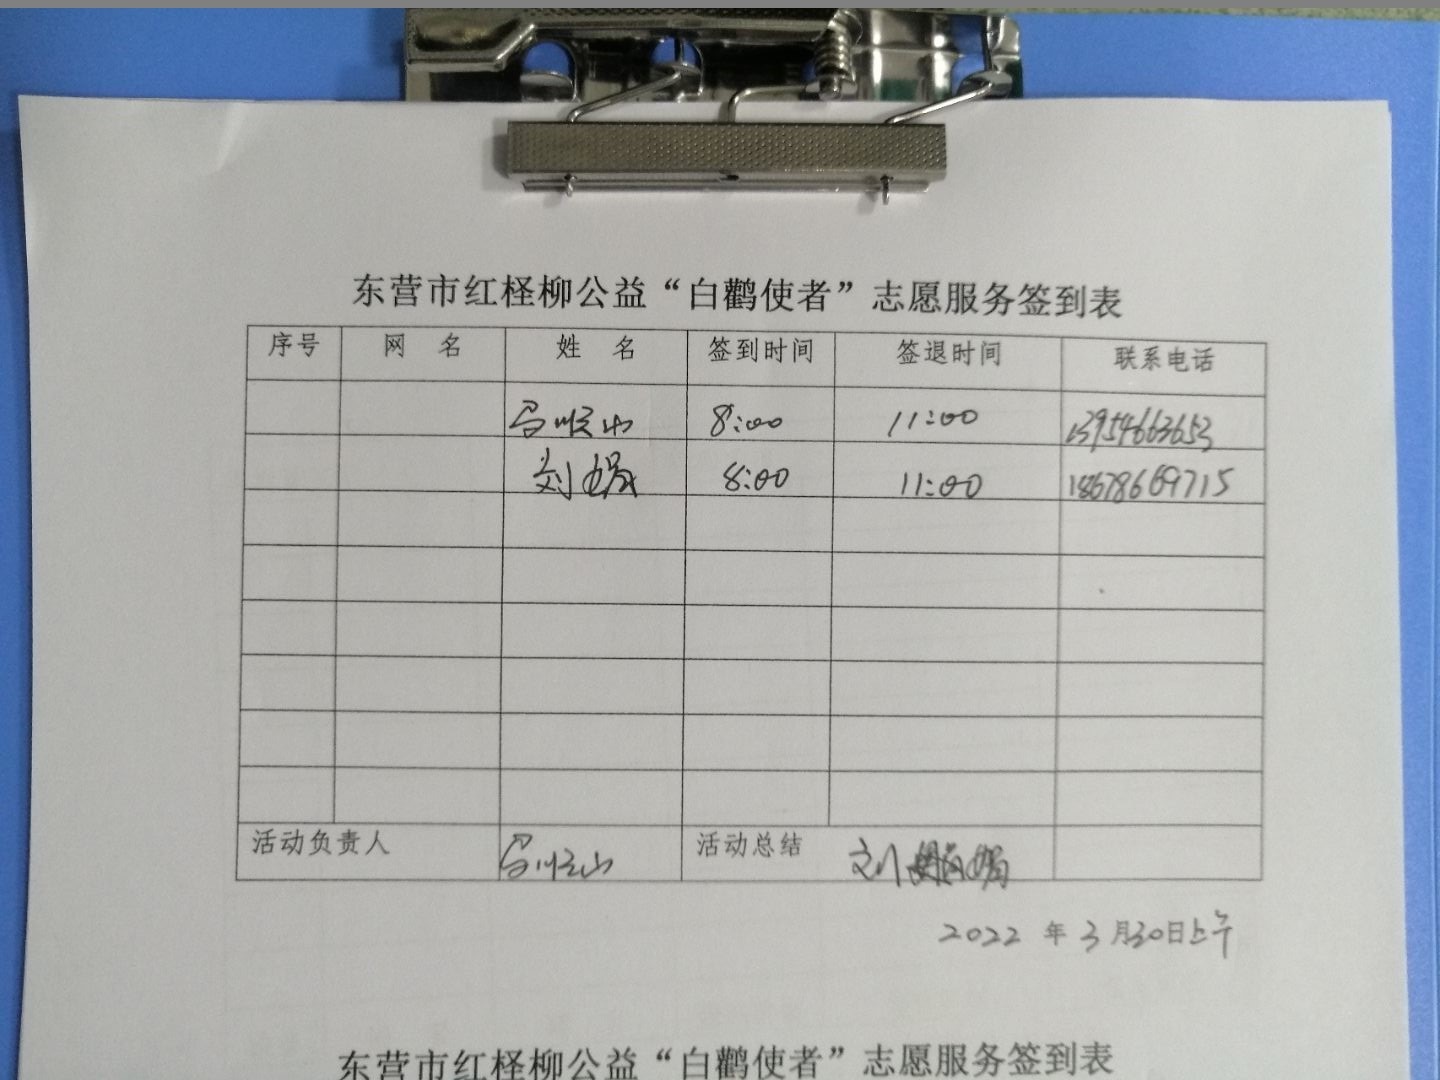 东营市红柽柳公益“白鹳使者”志愿服务签到表
序号 网 名 姓 名 签到时间 签退时间 联系电话
马顺山 8:00 11:00 13954663653
刘娟 8:00 11:00 18678669715
活动负责人 马顺山 活动总结 刘 娟
2022 年 3 月30日上午
东营市红柽柳公益“白鹳使者”志愿服务签到表